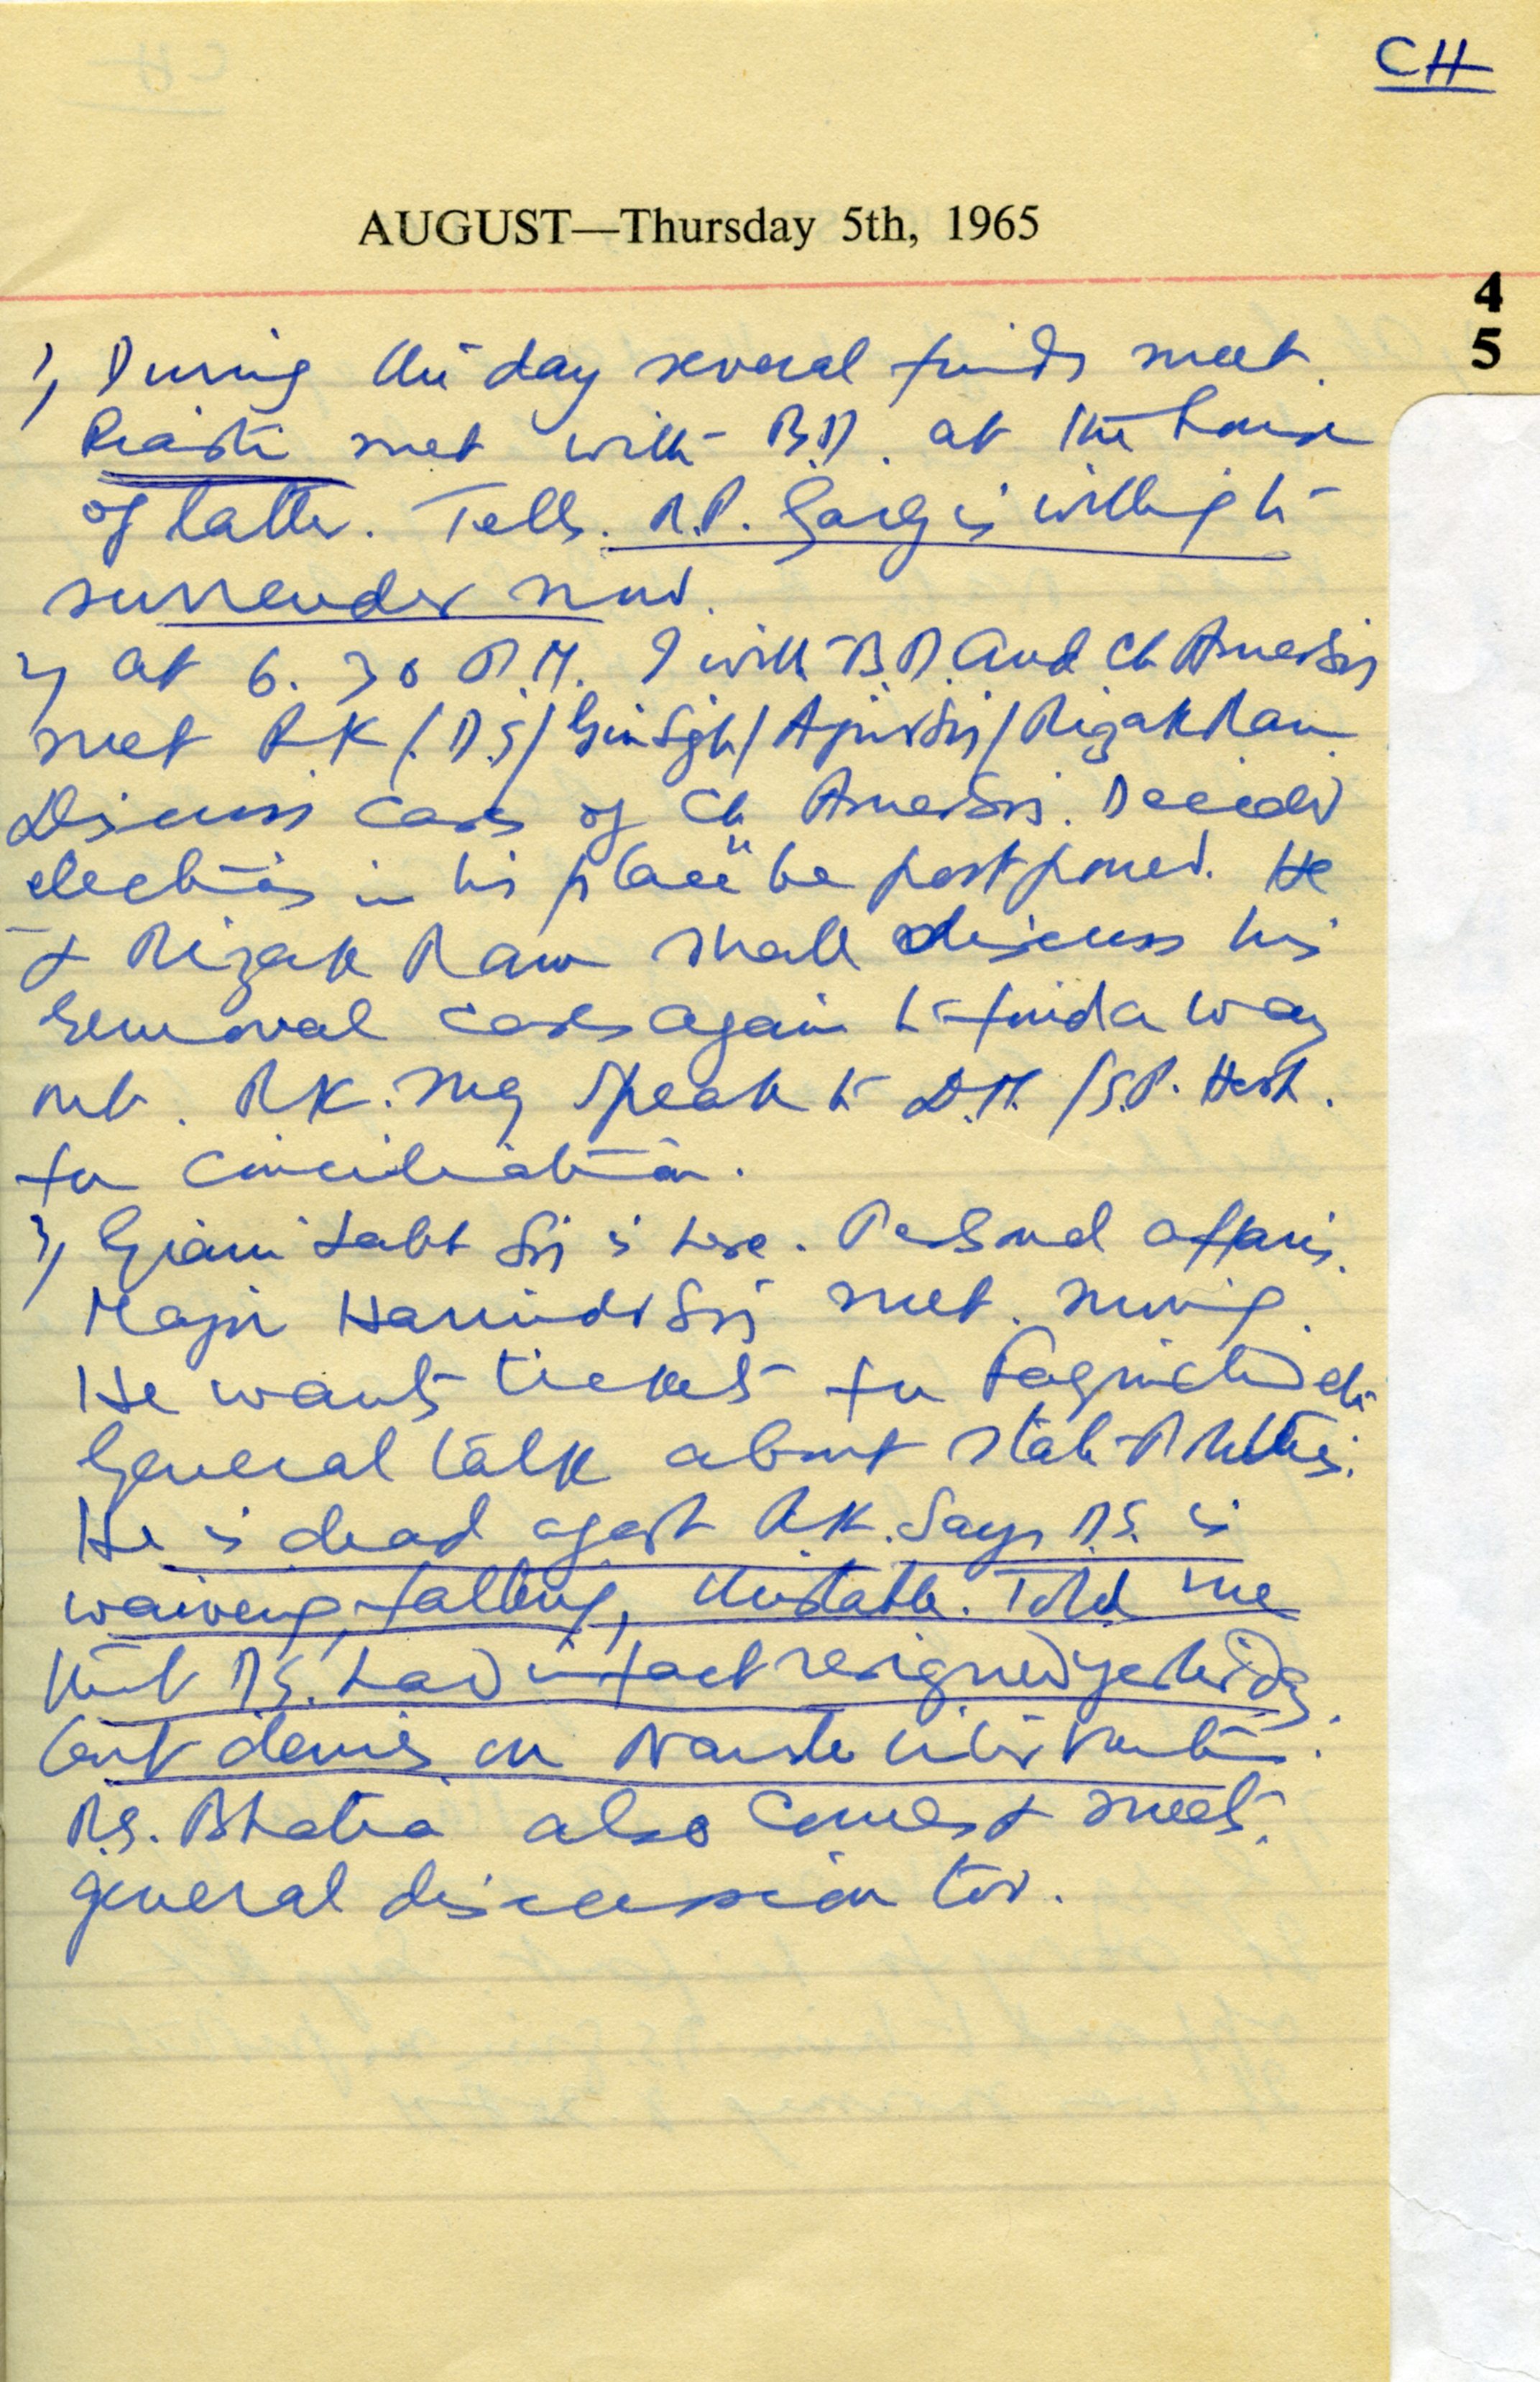 CH
AUGUST—Thursday 5th, 1965
4
5
1) During the day several friends meet.
met with B.D. at the house
of latter. Tells. R.P. Garg is willing to
surrender now.
2) At 6.30 P.M. I with B.D. and Ch Amersin
met R.K / D.S / / / Rizak Ram
Discuss case of Ch Amersin. Decided
election in his place be postponed. He
& Rizak Ram shall discuss his
removal case again to find a way
out. R.K. may speak to D.M. / S.P.
for conciliation.
3) Giani Sin is here. Personal affairs.
Major Harinder Sin met.
He wants ticket for
General talk about state Politics.
He is dead agest R.K. Says D.S. is
falling, unstable. Told me
that D.S. had in fact resigned yesterday,
but denies on
Bhatia also comes & meets.
general discussion too.